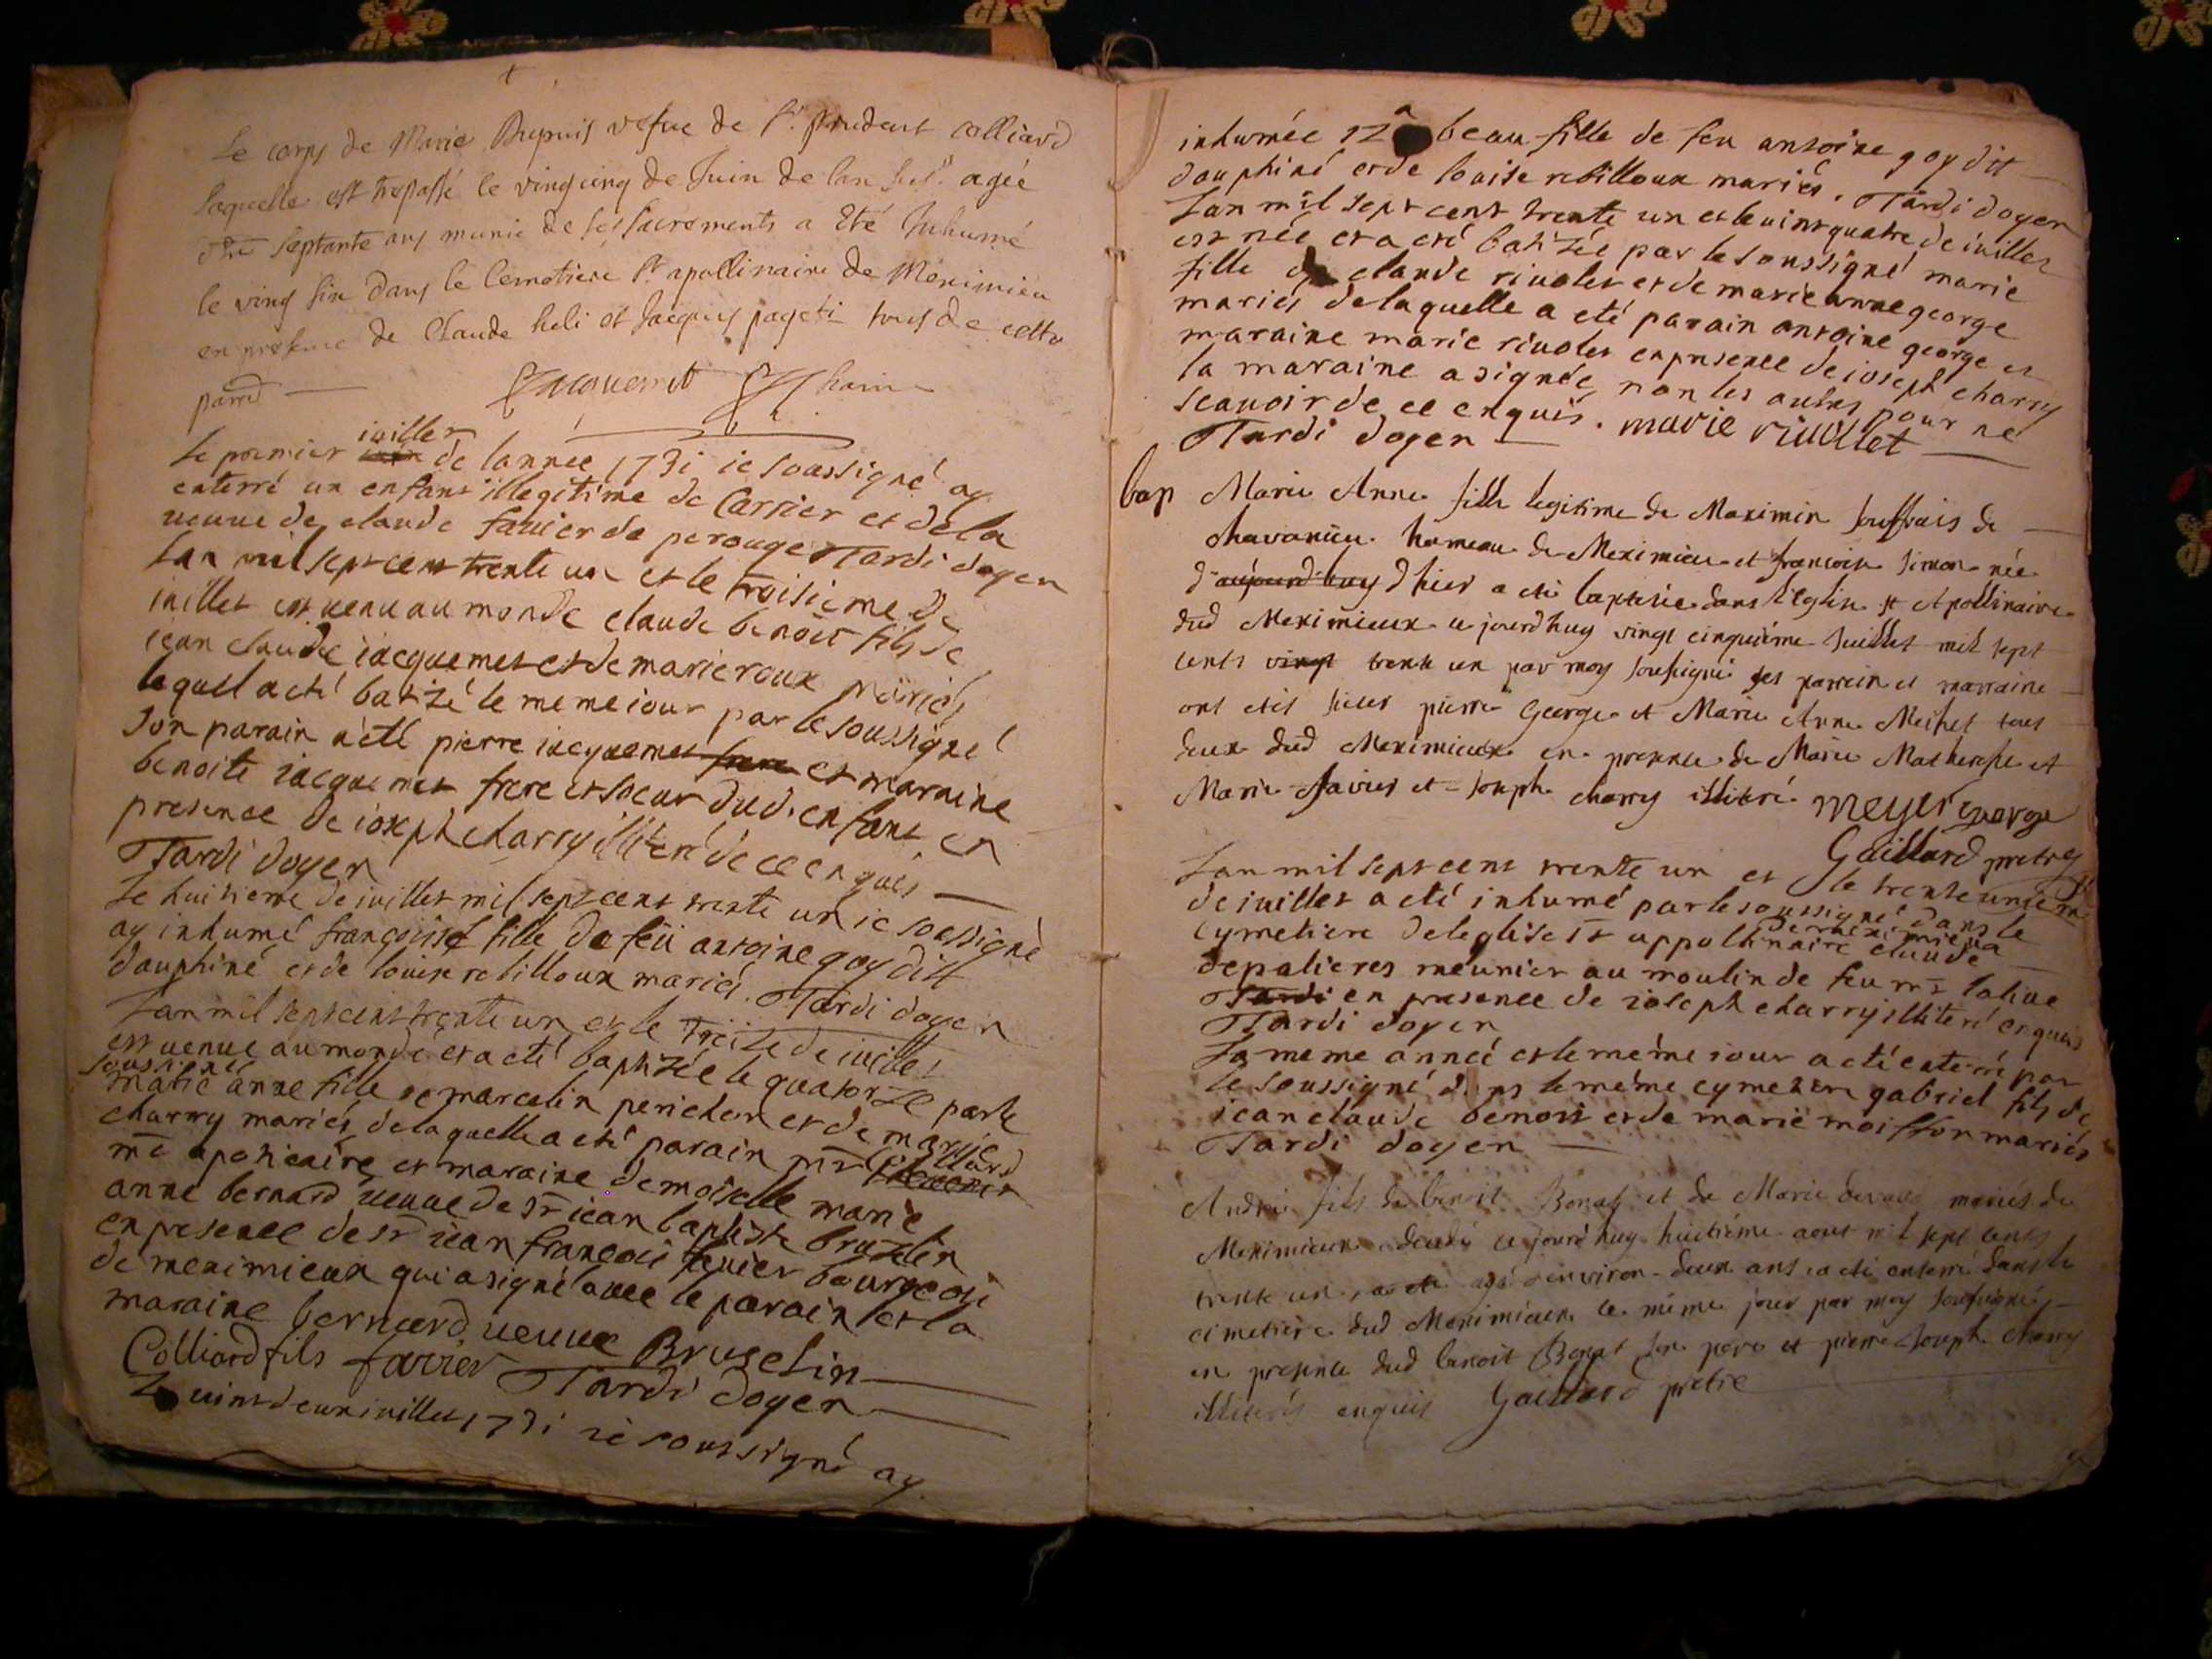 Le corps de Marie Dupuis vefve de Sr. prudent colliard
laquelle est trepassé le vingcinq de Juin de lan agée
septante ans munie de ses sacrements a Eté Inhumé
le ving six dans le Cemetiere St apollinaire de Meximieu
en presence de Claude heli et Jacques pageti tous de cette
Jacquemet
iuillet
Le premier de lannée 1731 ie soussigné ay
enterré un enfant illegitime de Carrier et de la
ueuue de claude fauier de perouge Tardi doyen
Lan mil sept cent trente un et le troisieme de
iuillet est uenu au monde claude benoit fils de
iean claude iacquemet et de marie roux mariés
lequel a eté batizé le meme iour par le soussigné
son parain a eté pierre iacquemet frere et maraine
benoite iacquemet frere et soeur dud. enfant en
presence de ioseph charry illiteré de ce enquis
Tardi doyen
Le huitieme de iuillet mil sept cent trente un ie soussigné
ay inhumé françoise fille de feu antoine goy dit
dauphiné et de louise retilloux mariés. Tardi doyen
Lan mil sept cent trente un et le treize de iuillet
est uenue au monde et a eté baptizée le quatorze par le
soussigné
marie anne fille de marcelin perichon et de marie
charry mariés, de laquelle a eté parain mr Colliard
me apoticaire et maraine demoiselle marie
anne bernard ueuue de sr iean baptiste bruzelin
en presence de sr iean francois fauier bourgeois
de meximieux qui a signé auec le parain et la
maraine bernard ueuue Bruzelin
Colliard fils favier Tardi doyen
Le uint deux iuillet 1731 ie soussigné ay
inhumée beau fille de feu antoine goy dit
dauphiné et de louise retilloux mariés. Tardi doyen
Lan mil sept cent trente un et le uint quatre de iuillet
est née et a eté batizée par le soussigné marie
fille de claude riuolet et de marie anne george
mariés de laquelle a eté parain antoine george et
maraine marie riuolet en presence de ioseph charry
la maraine a signée, non les autres pour ne
scauoir de ce enquis. marie riuollet
Tardi doyen
bap Marie Anne fille legitime de Maximin Jouffrais de
chavanieu hameau de Meximieu et francoise Simon née
d'aujourd'huy d'hier a eté baptisée dans l'Eglise st Apollinaire
dud Meximieux ce jourd'huy vingt cinquiéme Juillet mil sept
cents vingt trente un par moy soussigné ses parrein et marraine
ont etés sieur pierre George et Marie Anne Meyet tous
deux dud Meximieux en presence de Marie et
Marie favier et Joseph charry illiteré meyet george
Gaillard pretre
Lan mil sept cent trente un et le trente unieme
de iuillet a eté inhumé par le soussigné dans le
cymetiere de leglise st appollinaire de meximieux claude
depalieres meunier au moulin de feu mr
Tardi en presence de ioseph charry illiteré enquis
Tardi doyen
La meme année et le méme iour a eté enterré par
le soussigné dans le méme cymetiere gabriel fils de
iean claude benoit et de marie moisson mariés
Tardi doyen
André fils de benoit Bonat et de Marie mariés de
Meximieux decedé ce jourd'huy huitiéme aout mil sept cents
trente un, agé d'environ deux ans a eté enterré dans le
cimetiere dud Meximieux le méme jour par moy soussigné
en presence dud benoit Bonat son pere et pierre Joseph charry
illiterés enquis Gaillard pretre